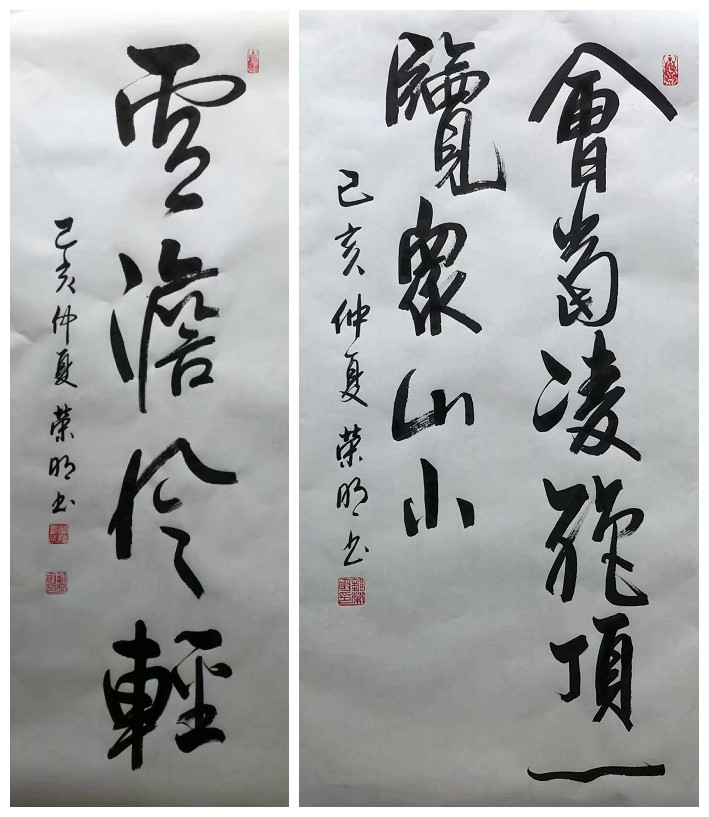 雲澹風輕
己亥仲夏 榮明书
會當凌絕頂一
覽眾山小
己亥仲夏 榮明书